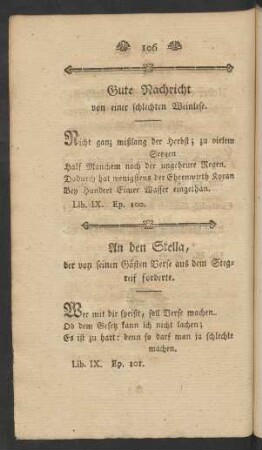 106
Gute Nachricht
von einer schlechten Weinlese.
Nicht ganz mißlang der Herbst; zu vielem
Seegen
Half Manchem noch der ungeheure Regen.
Dadurch hat wenigstens der Ehrenwirth Koran
Bey Hundert Eimer Wasser eingethan.
Lib. IX. Ep. 100.
An den Stella,
der von seinen Gästen Verse aus dem Steg-
reif forderte.
Wer mit dir speist, soll Verse machen.
Ob dem Gesetz kann ich nicht lachen;
Es ist zu hart: denn so darf man ja schlechte
machen.
Lib. IX. Ep. 101.